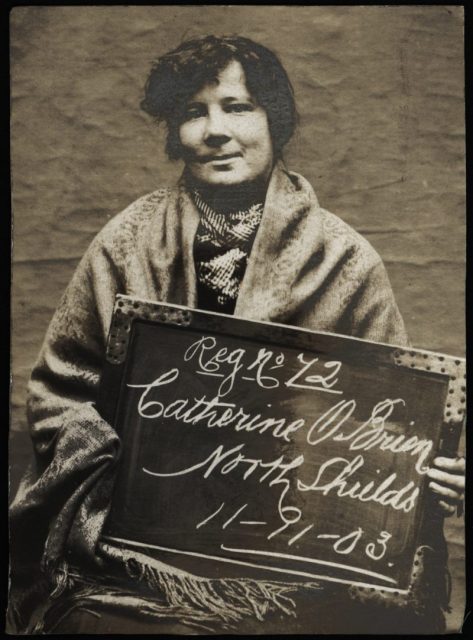 Reg No 72
Catherine O'Brien
North Shields
11-91-03.